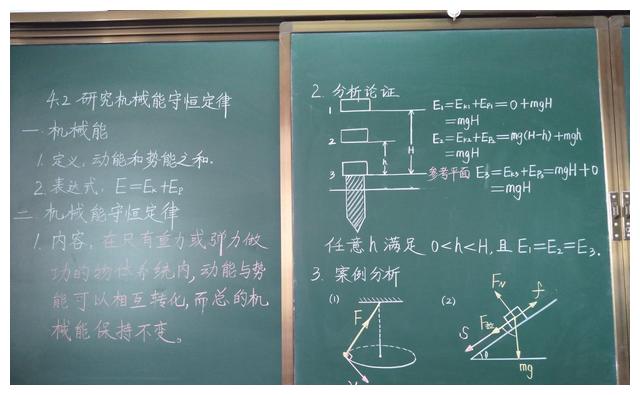 4.2 研究机械能守恒定律
一 机械能
1. 定义: 动能和势能之和.
2. 表达式: E=Ek+Ep
二. 机械能守恒定律
1. 内容: 在只有重力或弹力做
功的物体系统内,动能与势
能可以相互转化,而总的机
械能保持不变。
2. 分析论证
1
2
3
H
h
E1=EK1+EP1=0+mgH
=mgH
E2=EK2+EP2=mg(H-h)+mgh
=mgH
参考平面 E3=EK3+EP3=mgH+0
=mgH
任意h满足 0<h<H,且E1=E2=E3.
3. 案例分析
(1)
F
V
(2)
FN
f
S
θ
mg